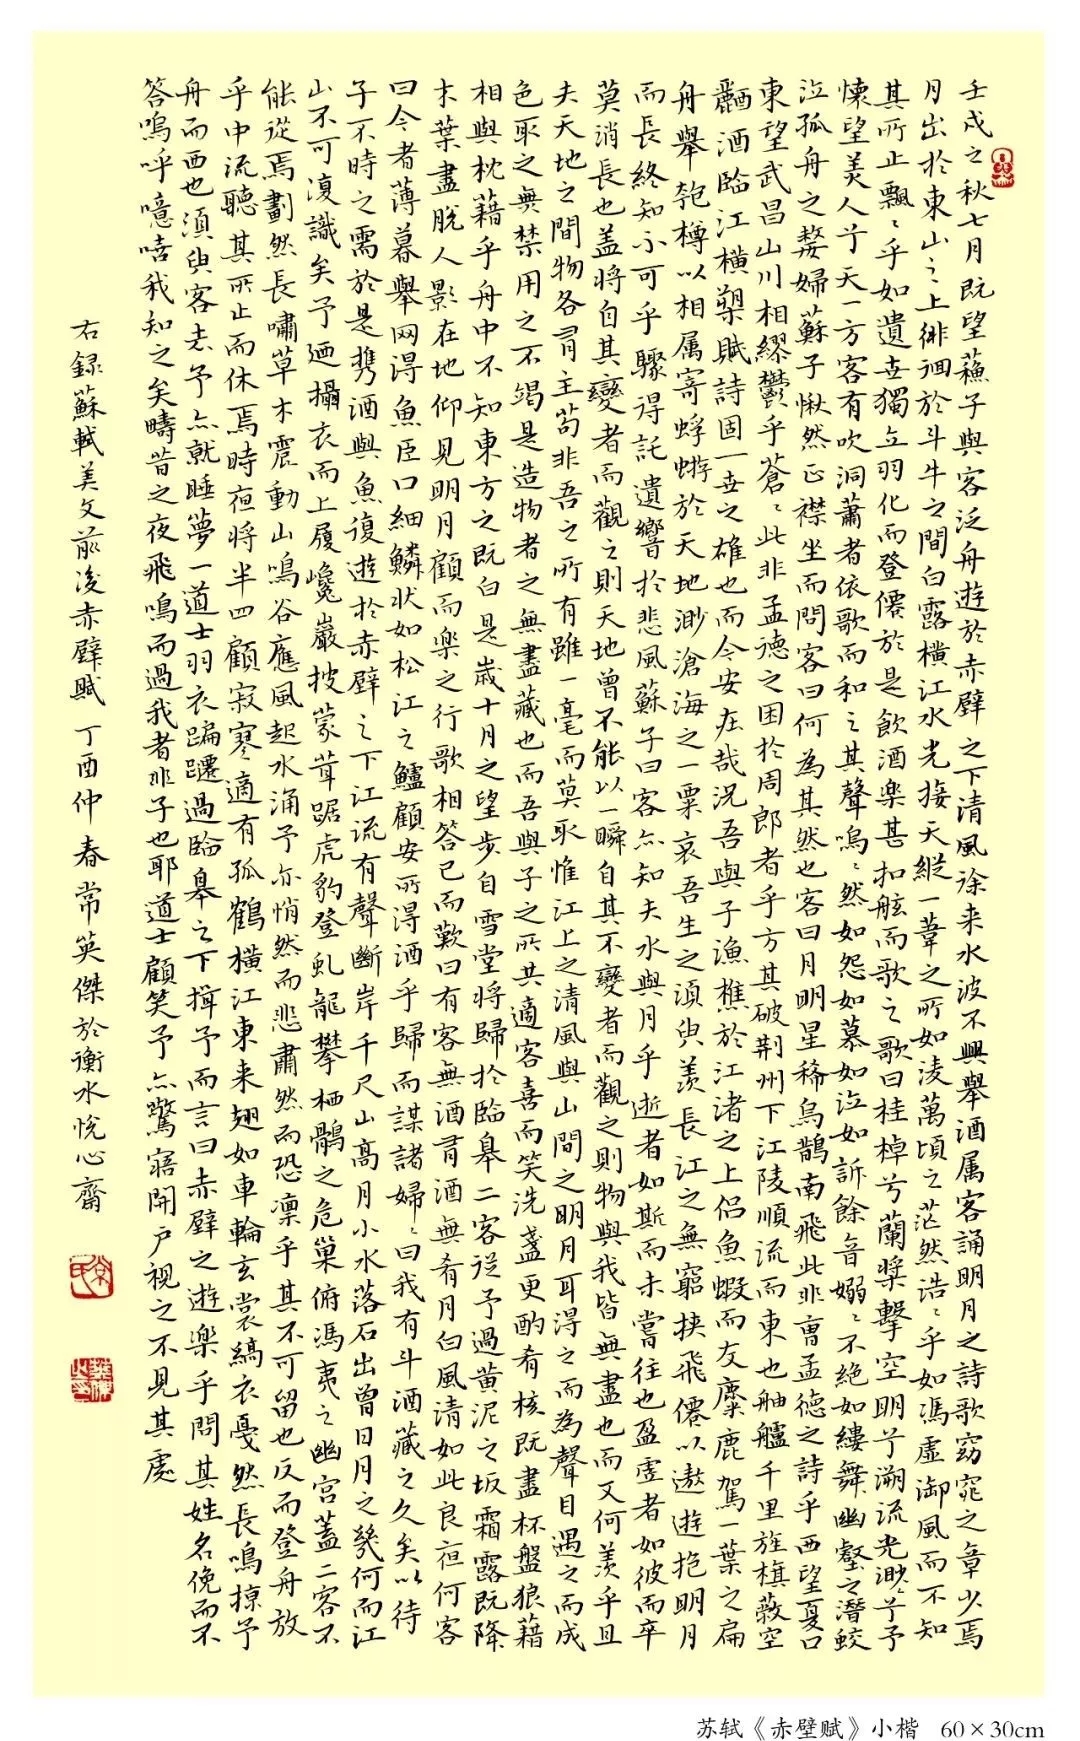 壬戌之秋七月既望蘓子與客泛舟遊於赤壁之下清風徐来水波不興舉酒属客誦明月之詩歌窈窕之章少焉
月出於東山之上徘徊於斗牛之間白露横江水光接天縱一葦之所如淩萬頃之茫然浩〻乎如馮虚御風而不知
其所止飄〻乎如遺世獨立羽化而登僊於是飲酒樂甚扣舷而歌之歌曰桂棹兮蘭槳擊空明兮溯流光渺〻兮予
懐望美人兮天一方客有吹洞蕭者依歌而和之其聲嗚〻然如怨如慕如泣如訴餘音嫋〻不絶如縷舞幽壑之潛蛟
泣孤舟之嫠婦蘇子愀然正襟坐而問客曰何為其然也客曰月明星稀烏鵲南飛此非曹孟德之詩乎西望夏口
東望武昌山川相繆鬱乎蒼〻此非孟德之困於周郎者乎方其破荆州下江陵順流而東也舳艫千里旌旗蔽空
釃酒臨江横槊賦詩固一世之雄也而今安在哉況吾與子漁樵於江渚之上侣魚蝦而友麋鹿駕一葉之扁
舟舉匏樽以相属寄蜉蝣於天地渺滄海之一粟哀吾生之須臾羡長江之無窮挟飛僊以遨遊抱明月
而長終知不可乎驟得託遺響於悲風蘇子曰客亦知夫水與月乎逝者如斯而未嘗往也盈虚者如彼而卒
莫消長也蓋將自其變者而觀之則天地曾不能以一瞬自其不變者而觀之則物與我皆無盡也而又何羡乎且
夫天地之間物各有主苟非吾之所有雖一毫而莫取惟江上之清風與山間之明月耳得之而為聲目遇之而成
色取之無禁用之不竭是造物者之無盡藏也而吾與子之所共適客喜而笑洗盞更酌肴核既盡杯盤狼藉
相與枕藉乎舟中不知東方之既白是歳十月之望步自雪堂將歸於臨皋二客従予過黄泥之坂霜露既降
木葉盡脱人影在地仰見明月顧而樂之行歌相答已而歎曰有客無酒有酒無肴月白風清如此良夜何客
曰今者薄暮舉网得魚巨口細鱗状如松江之鱸顧安所得酒乎歸而謀諸婦〻曰我有斗酒藏之久矣以待
子不時之需於是携酒與魚復遊於赤壁之下江流有聲斷岸千尺山高月小水落石出曾日月之幾何而江
山不可復識矣予廼攝衣而上履巉巖披蒙茸踞虎豹登虬龍攀栖鶻之危巢俯馮夷之幽宫蓋二客不
能從焉劃然長嘯草木震動山鳴谷應風起水涌予亦悄然而悲肅然而恐凛乎其不可留也反而登舟放
乎中流聽其所止而休焉時夜将半四顧寂寥適有孤鶴横江東来翅如車輪玄裳縞衣戛然長鳴掠予
舟而西也須臾客去予亦就睡夢一道士羽衣蹁躚過臨皋之下揖予而言曰赤壁之遊樂乎問其姓名俛而不
答嗚呼噫嘻我知之矣疇昔之夜飛鳴而過我者非子也耶道士顧笑予亦驚寤開户視之不見其處
右録蘇軾美文前後赤壁賦丁酉仲春常英傑於衡水悦心齋
苏轼《赤壁赋》小楷 60×30cm